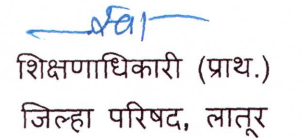 शिक्षणाधिकारी (प्राथ.)
जिल्हा परिषद, लातूर